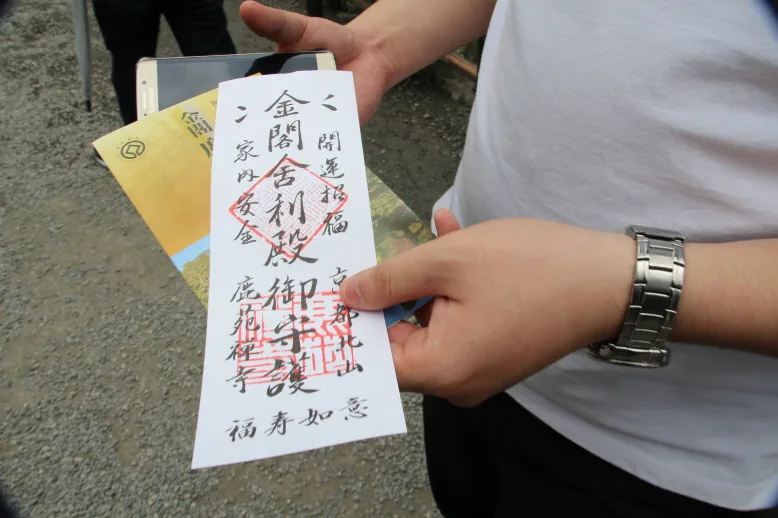 開運招福 京都北山
金閣舎利殿御守護
家内安全 鹿苑禅寺
福寿如意
金閣